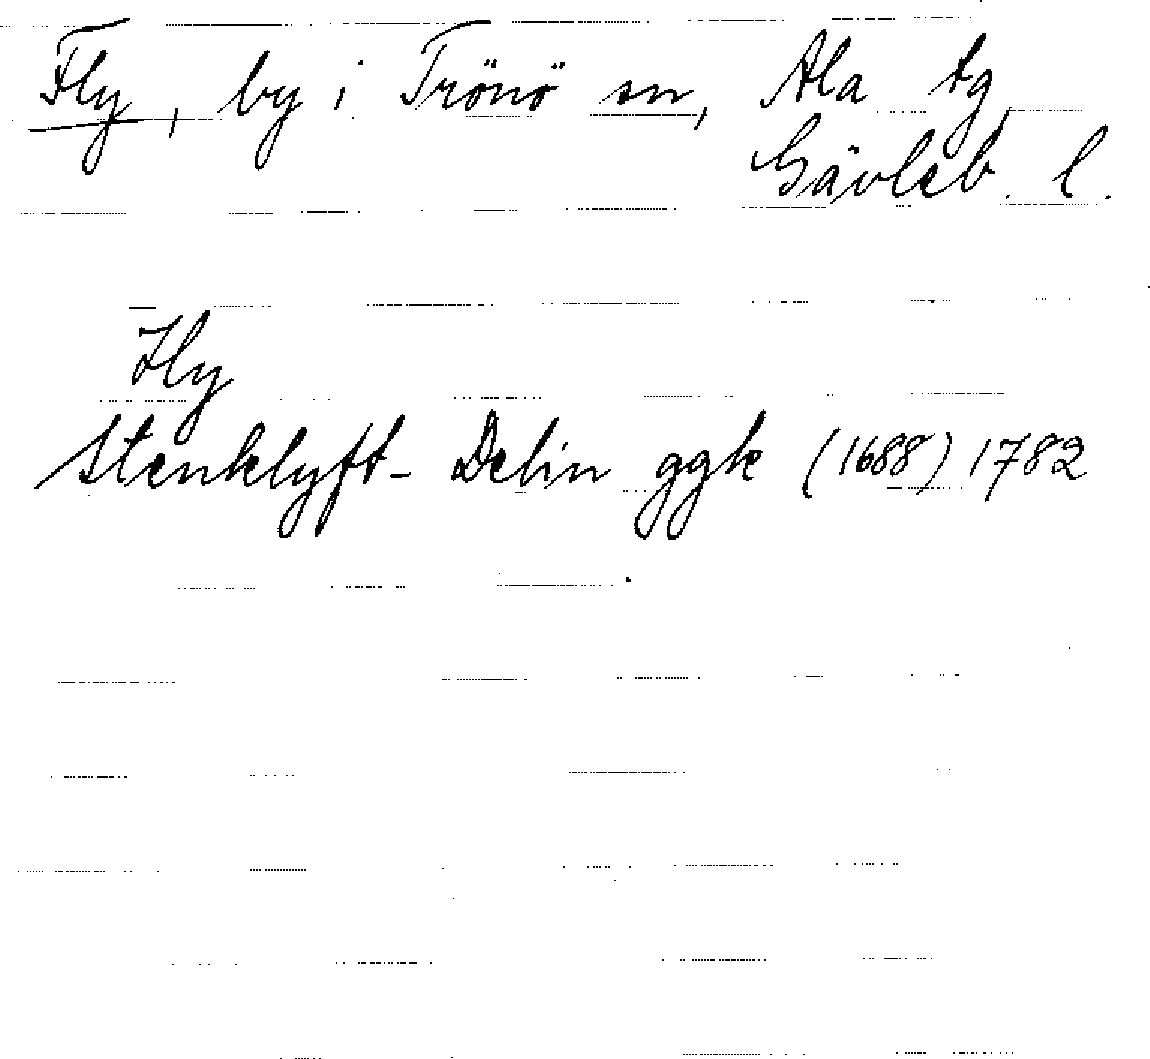 Fly, by i Trönö sn, Ala tg
Gävleb. l.
Fly
Stenklyft- Delin ggk (1688) 1782